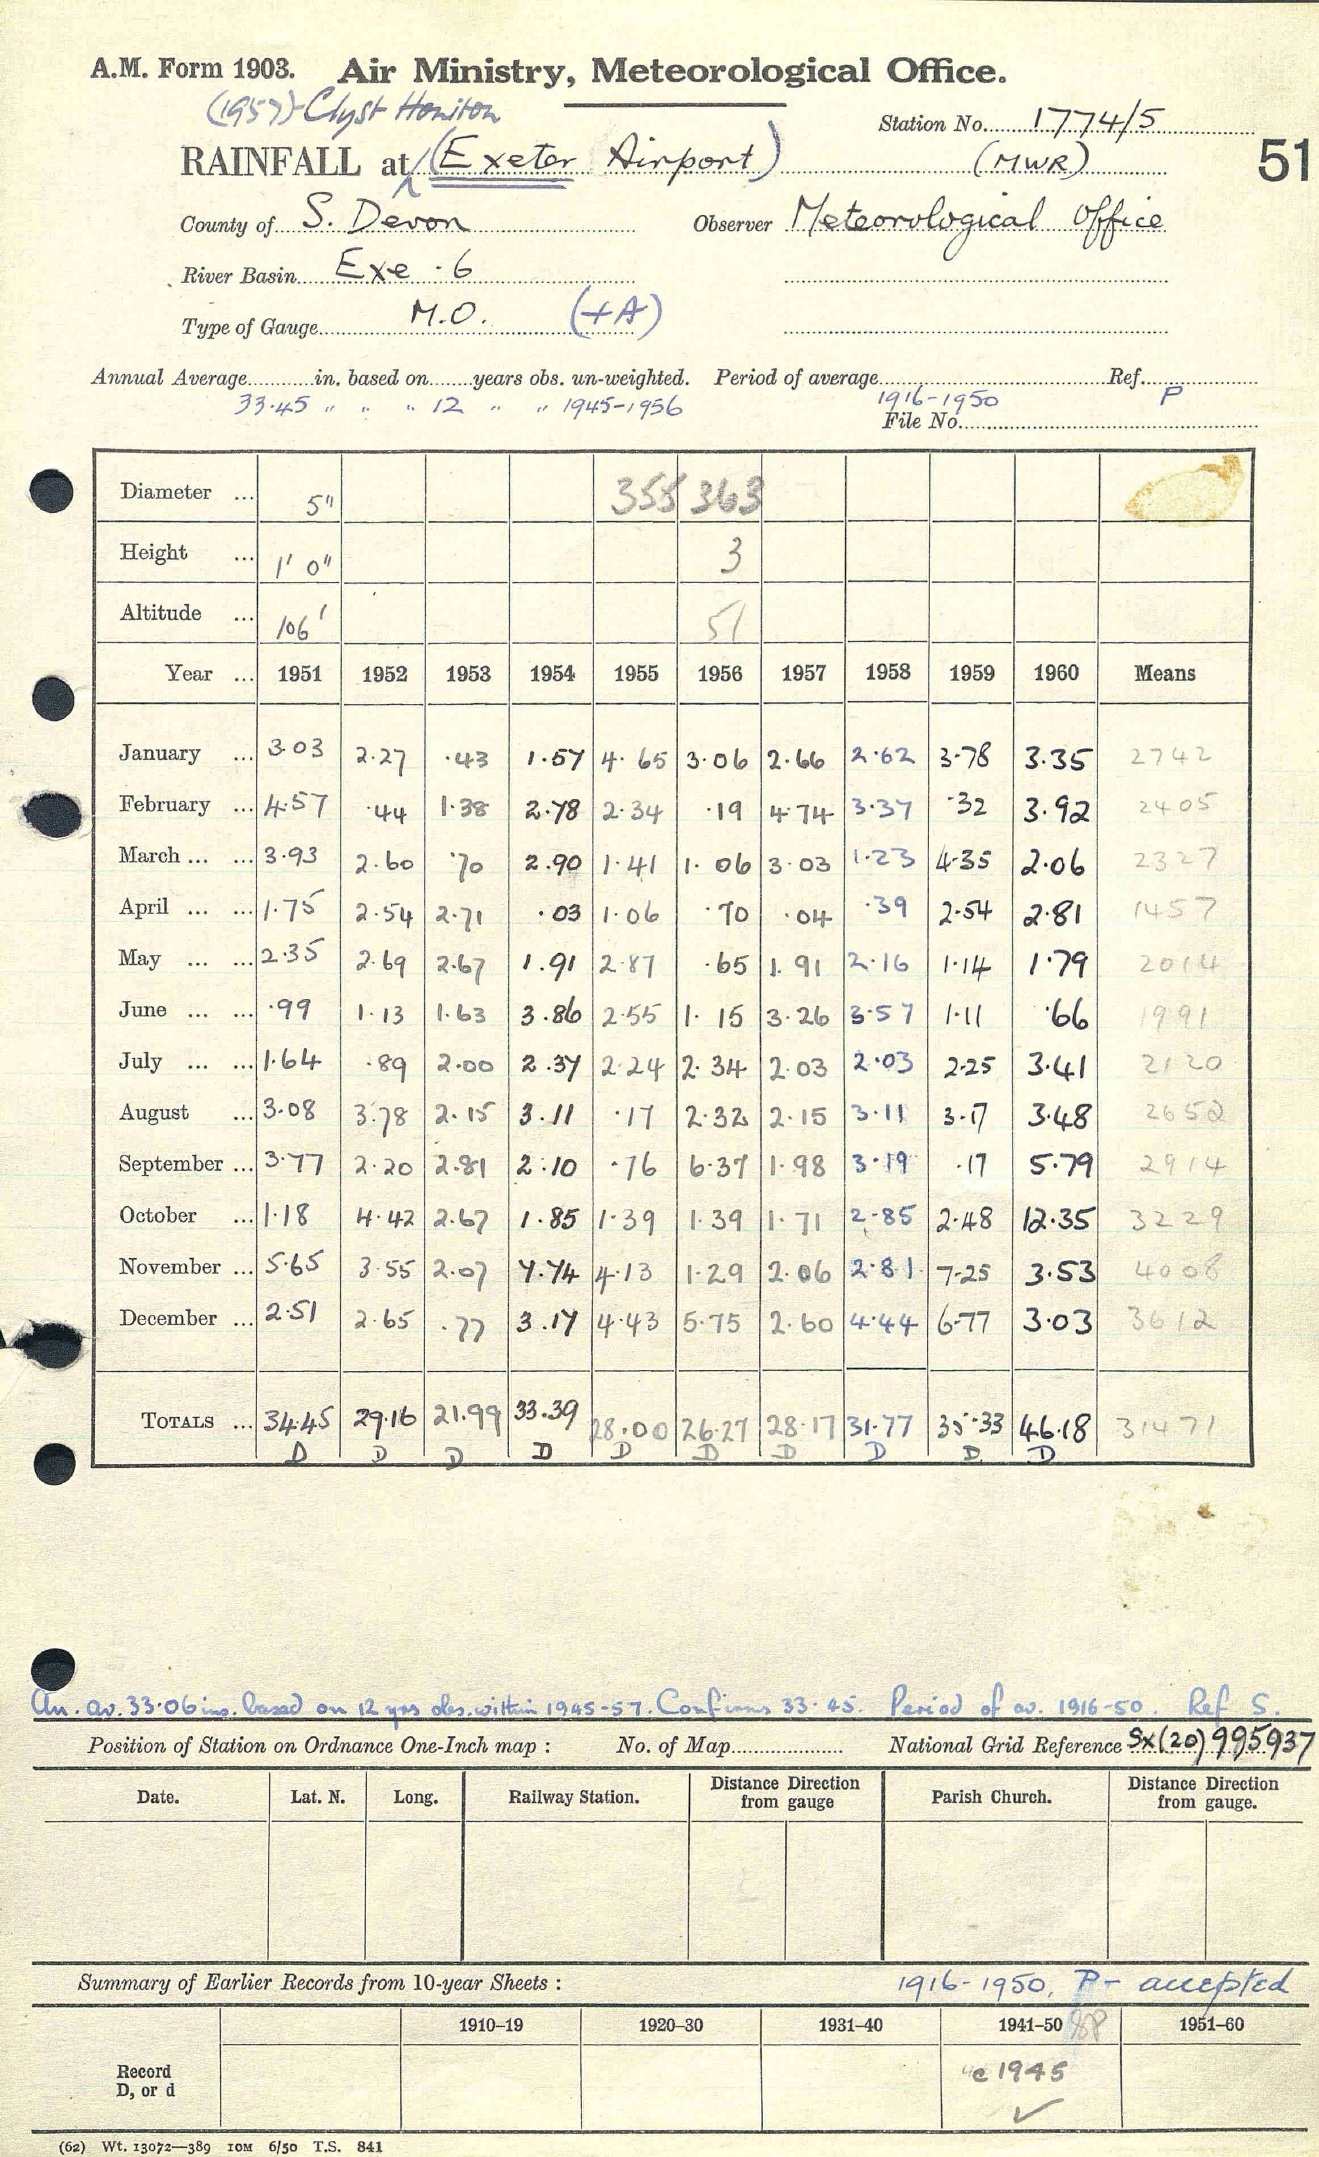 A.M. Form 1903. Air Ministry, Meteorological Office.
(1957)-Clyst Honiton
Station No. 1774/5
RAINFALL at (Exeter Airport) (MWR) 51
County of S. Devon Observer Meteorological Office
River Basin Exe . 6
Type of Gauge M.O. (+A)
Annual Average in. based on years obs. un-weighted. Period of average Ref. P
33.45 " " " 12 " " 1945-1956 1916-1950
File No.
Diameter ... 5" 355 363
Height ... 1' 0" 3
Altitude ... 106' 51
Year ... 1951 1952 1953 1954 1955 1956 1957 1958 1959 1960 Means
January ... 3.03 2.27 .43 1.57 4.65 3.06 2.66 2.62 3.78 3.35 2742
February ... 4.57 .44 1.38 2.78 2.34 .19 4.74 3.37 .32 3.92 2405
March ... ... 3.93 2.60 .70 2.90 1.41 1.06 3.03 1.23 4.35 2.06 2327
April ... ... 1.75 2.54 2.71 .03 1.06 .70 .04 .39 2.54 2.81 1457
May ... ... 2.35 2.69 2.67 1.91 2.87 .65 1.91 2.16 1.14 1.79 2014
June ... ... .99 1.13 1.63 3.86 2.55 1.15 3.26 3.57 1.11 .66 1991
July ... ... 1.64 .89 2.00 2.37 2.24 2.34 2.03 2.03 2.25 3.41 2120
August ... 3.08 3.78 2.15 3.11 .17 2.32 2.15 3.11 3.17 3.48 2652
September ... 3.77 2.20 2.81 2.10 .76 6.37 1.98 3.19 .17 5.79 2914
October ... 1.18 4.42 2.67 1.85 1.39 1.39 1.71 2.85 2.48 12.35 3229
November ... 5.65 3.55 2.07 7.74 4.13 1.29 2.06 2.81 7.25 3.53 4008
December ... 2.51 2.65 .77 3.17 4.43 5.75 2.60 4.44 6.77 3.03 3612
TOTALS ... 34.45 29.16 21.99 33.39 28.00 26.27 28.17 31.77 35.33 46.18 31471
D D D D D D D D D D
An. av. 33.06 ins. based on 12 yrs obs. within 1945-57. Confirms 33.45. Period of av. 1916-50. Ref S.
Position of Station on Ordnance One-Inch map : No. of Map National Grid Reference Sx(20)995937
Date. Lat. N. Long. Railway Station. Distance Direction from gauge Parish Church. Distance Direction from gauge.
Summary of Earlier Records from 10-year Sheets : 1916-1950, P- accepted
1910–19 1920–30 1931–40 1941–50 1951–60
Record D, or d c 1945 ✓
(62) Wt. 13072—389 10M 6/50 T.S. 841